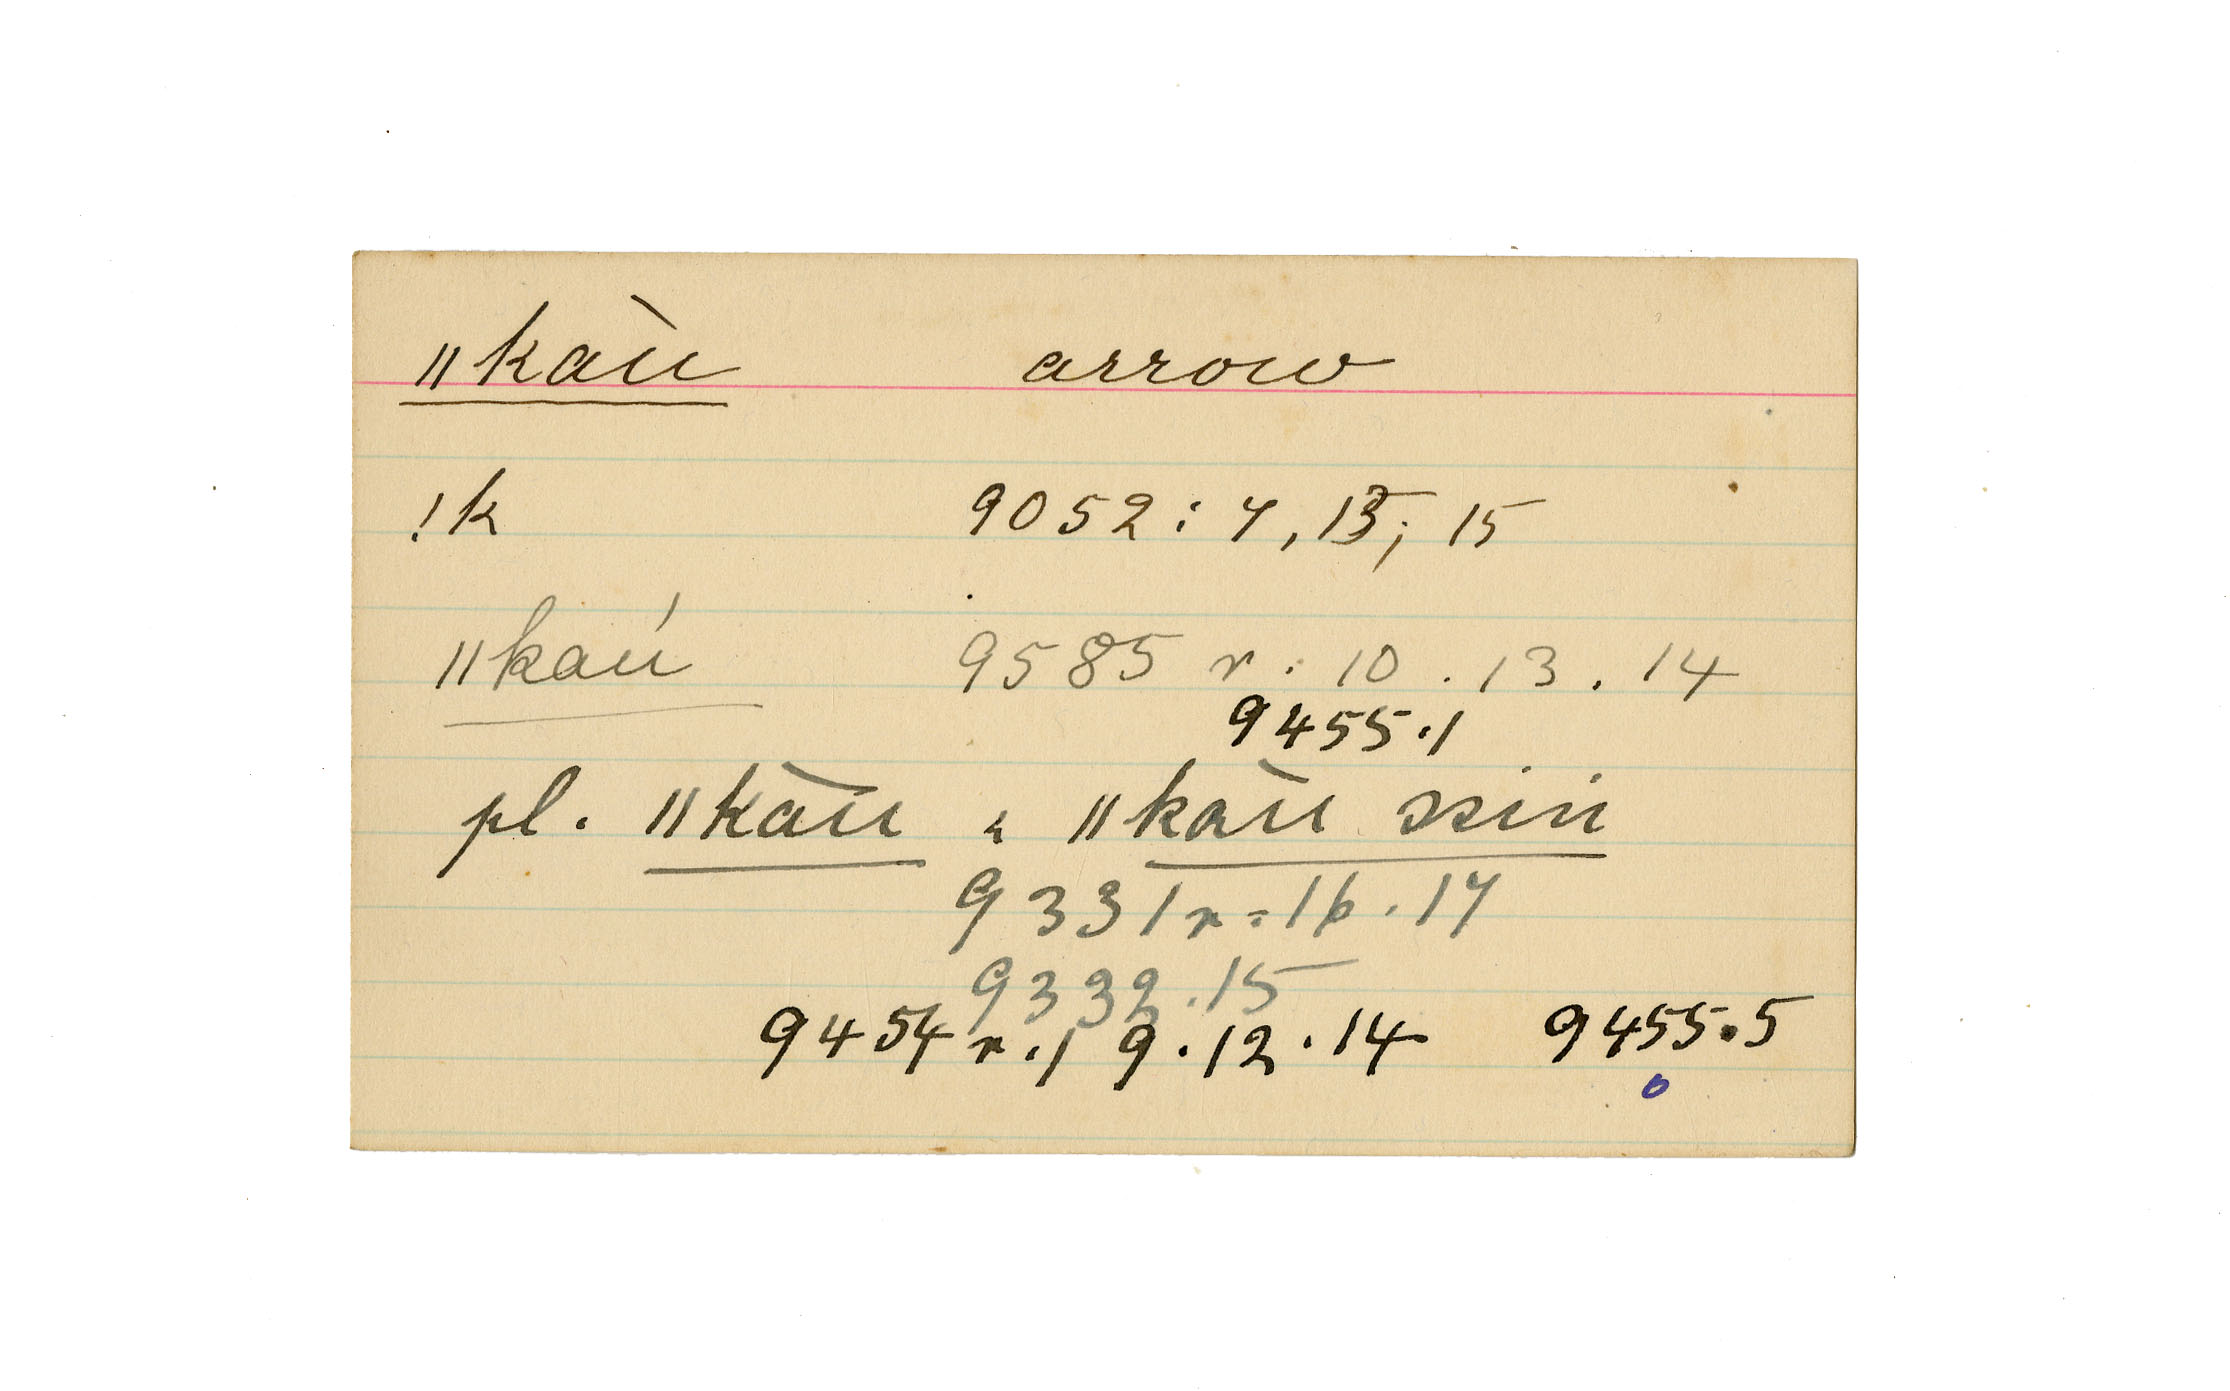 ǁkàu arrow
!k 9052 : 7, 13, 15
ǁkaú 9585 r : 10 . 13 . 14
9455 . 1
pl. ǁkàu , ǁkàu ssin
9331 r : 16 . 17
9332 . 15
9454 r . 1 9 . 12 . 14 9455 . 5